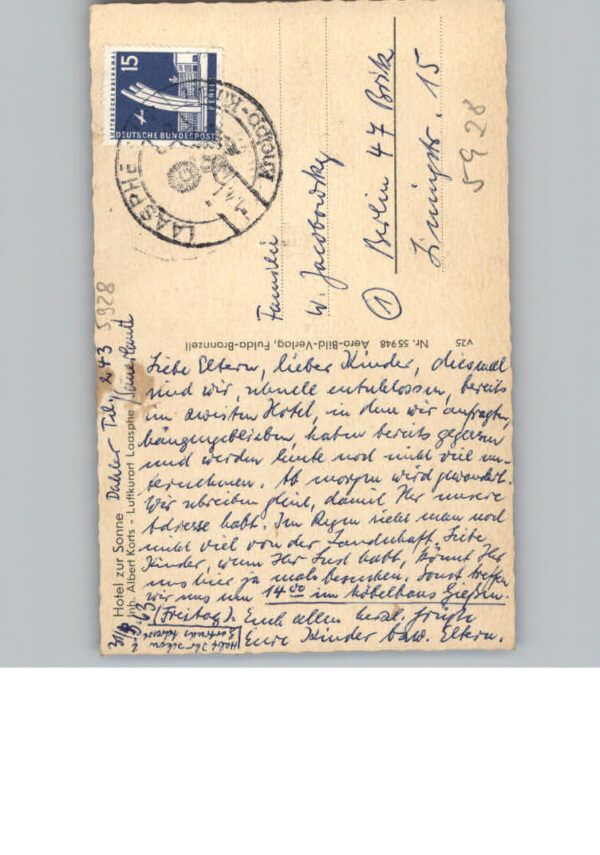 15
LUFTBRÜCKENDENKMAL
BERLIN
DEUTSCHE BUNDESPOST
LAASPHE
Kneipp-K
Familie
W. Jacobowsky
① Berlin 47 Britz
15
5928
v25 Nr. 55 948 Aero-Bild-Verlag, Fulda-Bronnzell
Hotel zur Sonne
Inh. Albert Korts - Luftkurort Laasphe
Tel. 243 5928
Liebe Eltern, lieber Kinder, diesmal
sind wir, schnell entschlossen, bereits
im zweiten Hotel, in dem wir anfragten,
hängengeblieben, haben bereits gegessen
und werden heute noch nicht viel un-
ternehmen. Ab morgen wird gewandert.
Wir schreiben gleich, damit Ihr unsere
Adresse habt. Im Regen sieht man noch
nicht viel von der Landschaft. Liebe
Kinder, wenn Ihr Lust habt, könnt Ihr
uns hier ja mal besuchen. Sonst treffen
wir uns um 14⁰⁰ im Möbelhaus Gießen.
(Freitag). Euch allen herzl. Grüße
Eure Kinder bzw. Eltern.
63
Habt Ihr schon